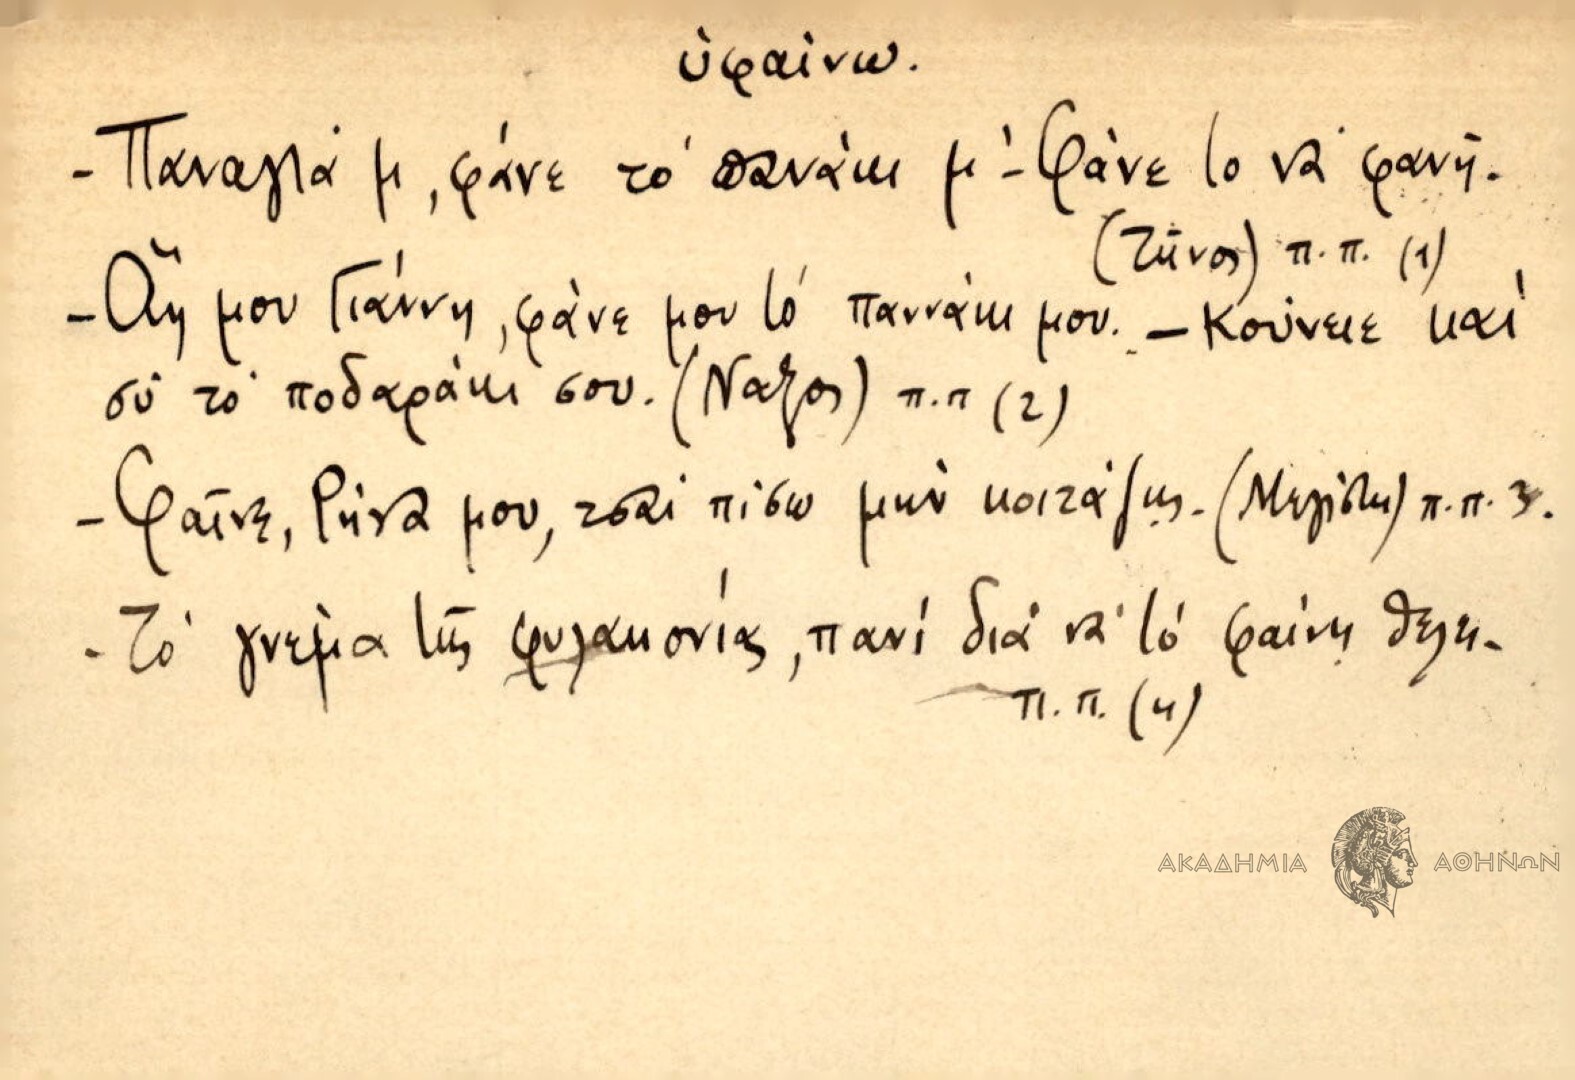 ὑφαίνω.
- Παναγιά μ, φάνε τὸ πανάκι μ' - Φάνε το νὰ φανῇ.
(Τῆνος) π.π. (1)
- Ἅη μου Γιάννη, φάνε μου τὸ παννάκι μου. - Κούνειε καὶ
σὺ τὸ ποδαράκι σου. (Νάξος) π.π (2)
- Φαῖνε, Ρήνα μου, τσαὶ πίσω μὴν κοιτάζῃς. (Μεγίστη) π.π. 3.
- Τὸ γνεμα τῆς φυλακονίας, πανὶ διὰ νὰ τὸ φαίνῃ θέλει.
π.π. (4)
ΑΚΑΔΗΜΙΑ ΑΘΗΝΩΝ